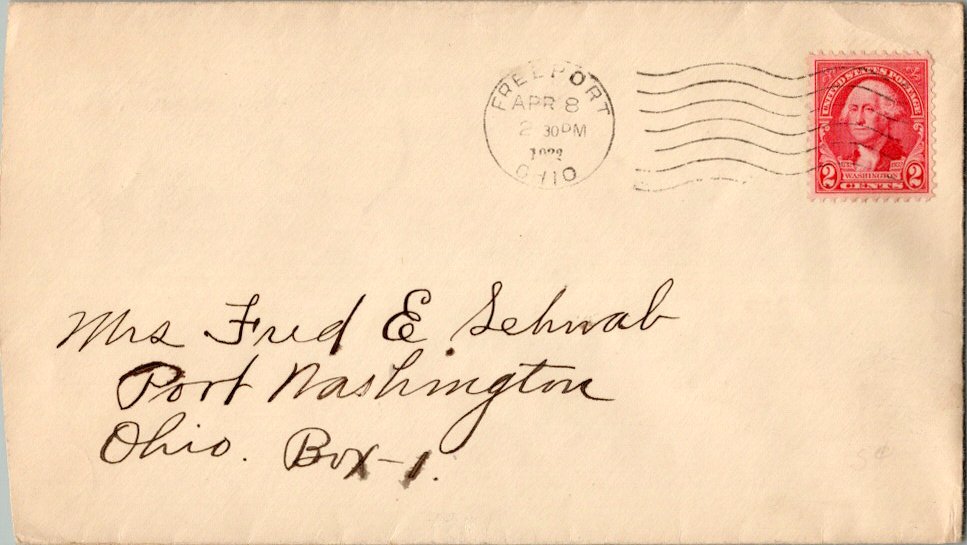 FREEPORT
APR 8
2 30PM
OHIO
UNITED STATES POSTAGE
1732 1932
WASHINGTON
2 2
CENTS
Mrs Fred E. Schwab
Port Washington
Ohio. Box-1.